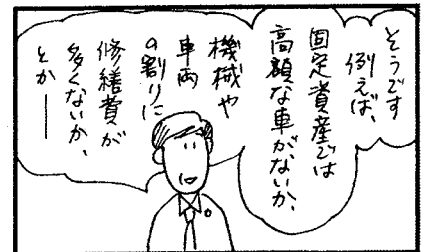 そうです
例えば、
固定資産では
高額な車がないか、
機械や
車両
の割りに
修繕費が
多くないか、
とか――